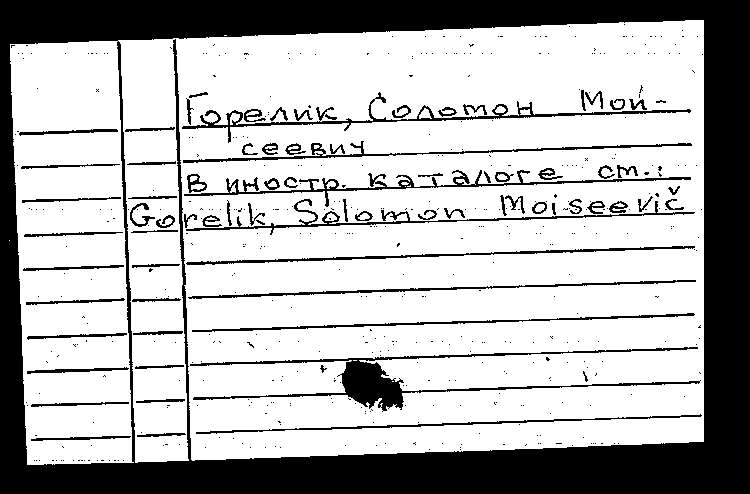 Горелик, Соломон Мои-
сеевич
В иностр. каталоге см.:
Gorelik, Solomon Moiseevič